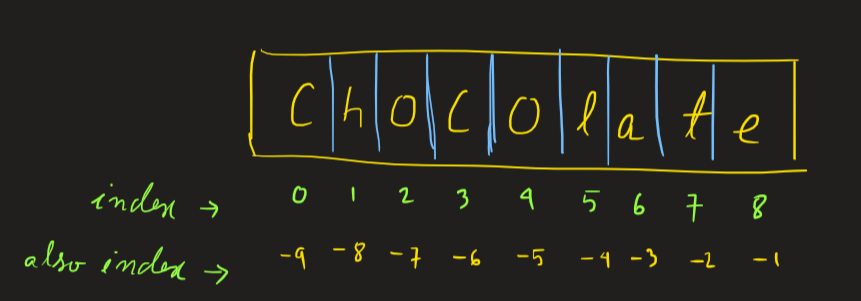 Chocolate
index → 0 1 2 3 4 5 6 7 8
also index → -9 -8 -7 -6 -5 -4 -3 -2 -1